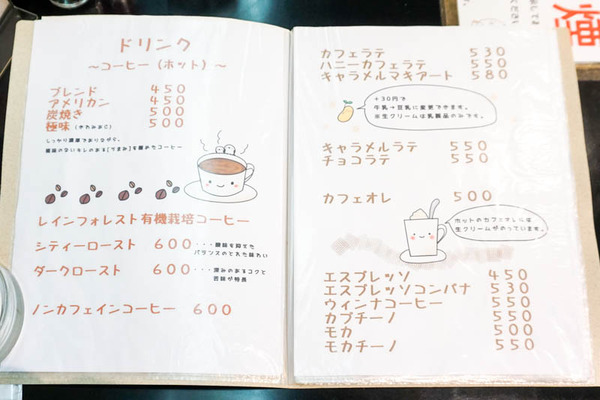 ドリンク
～コーヒー（ホット）～
ブレンド 450
アメリカン 450
炭焼き 500
極味（きわみあじ） 500
レインフォレスト有機栽培コーヒー
シティーロースト 600・・・酸味を抑えた
バランスのとれた味わい
ダークロースト 600・・・深みのあるコクと
苦味が特長
ノンカフェインコーヒー 600
カフェラテ 530
ハニーカフェラテ 550
キャラメルマキアート 580
+30円で
牛乳→豆乳に変更できます。
※生クリームは乳製品のみです。
キャラメルラテ 550
チョコラテ 550
カフェオレ 500
ホットのカフェオレには
生クリームがのっています。
エスプレッソ 450
エスプレッソコンパナ 530
ウィンナコーヒー 550
カプチーノ 550
モカ 500
モカチーノ 550